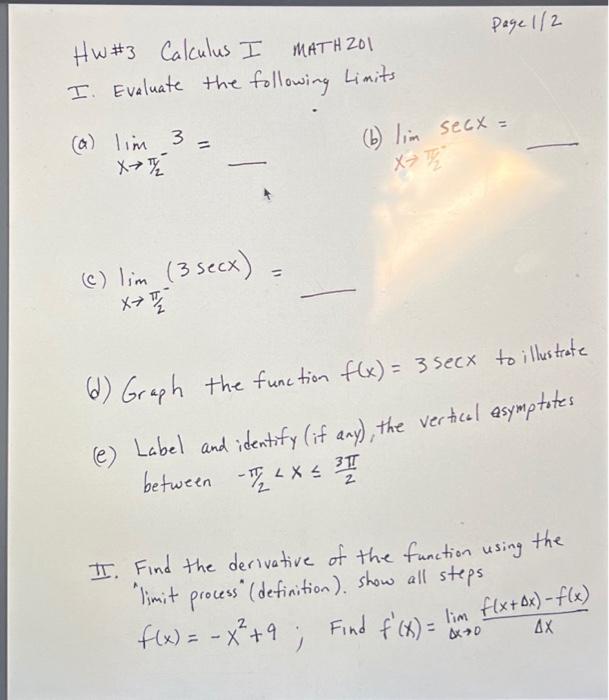 Page 1/2
HW#3 Calculus I MATH 201
I. Evaluate the following Limits
(a) lim x→π/2⁻ 3 = __
(b) lim x→π/2⁻ secx = __
(c) lim x→π/2⁻ (3 secx) = __
(d) Graph the function f(x) = 3 secx to illustrate
(e) Label and identify (if any), the vertical asymptotes
between -π/2 < x ≤ 3π/2
II. Find the derivative of the function using the
"limit process" (definition). show all steps
f(x) = -x²+9 ; Find f'(x) = lim Δx→0 f(x+Δx)-f(x)/Δx